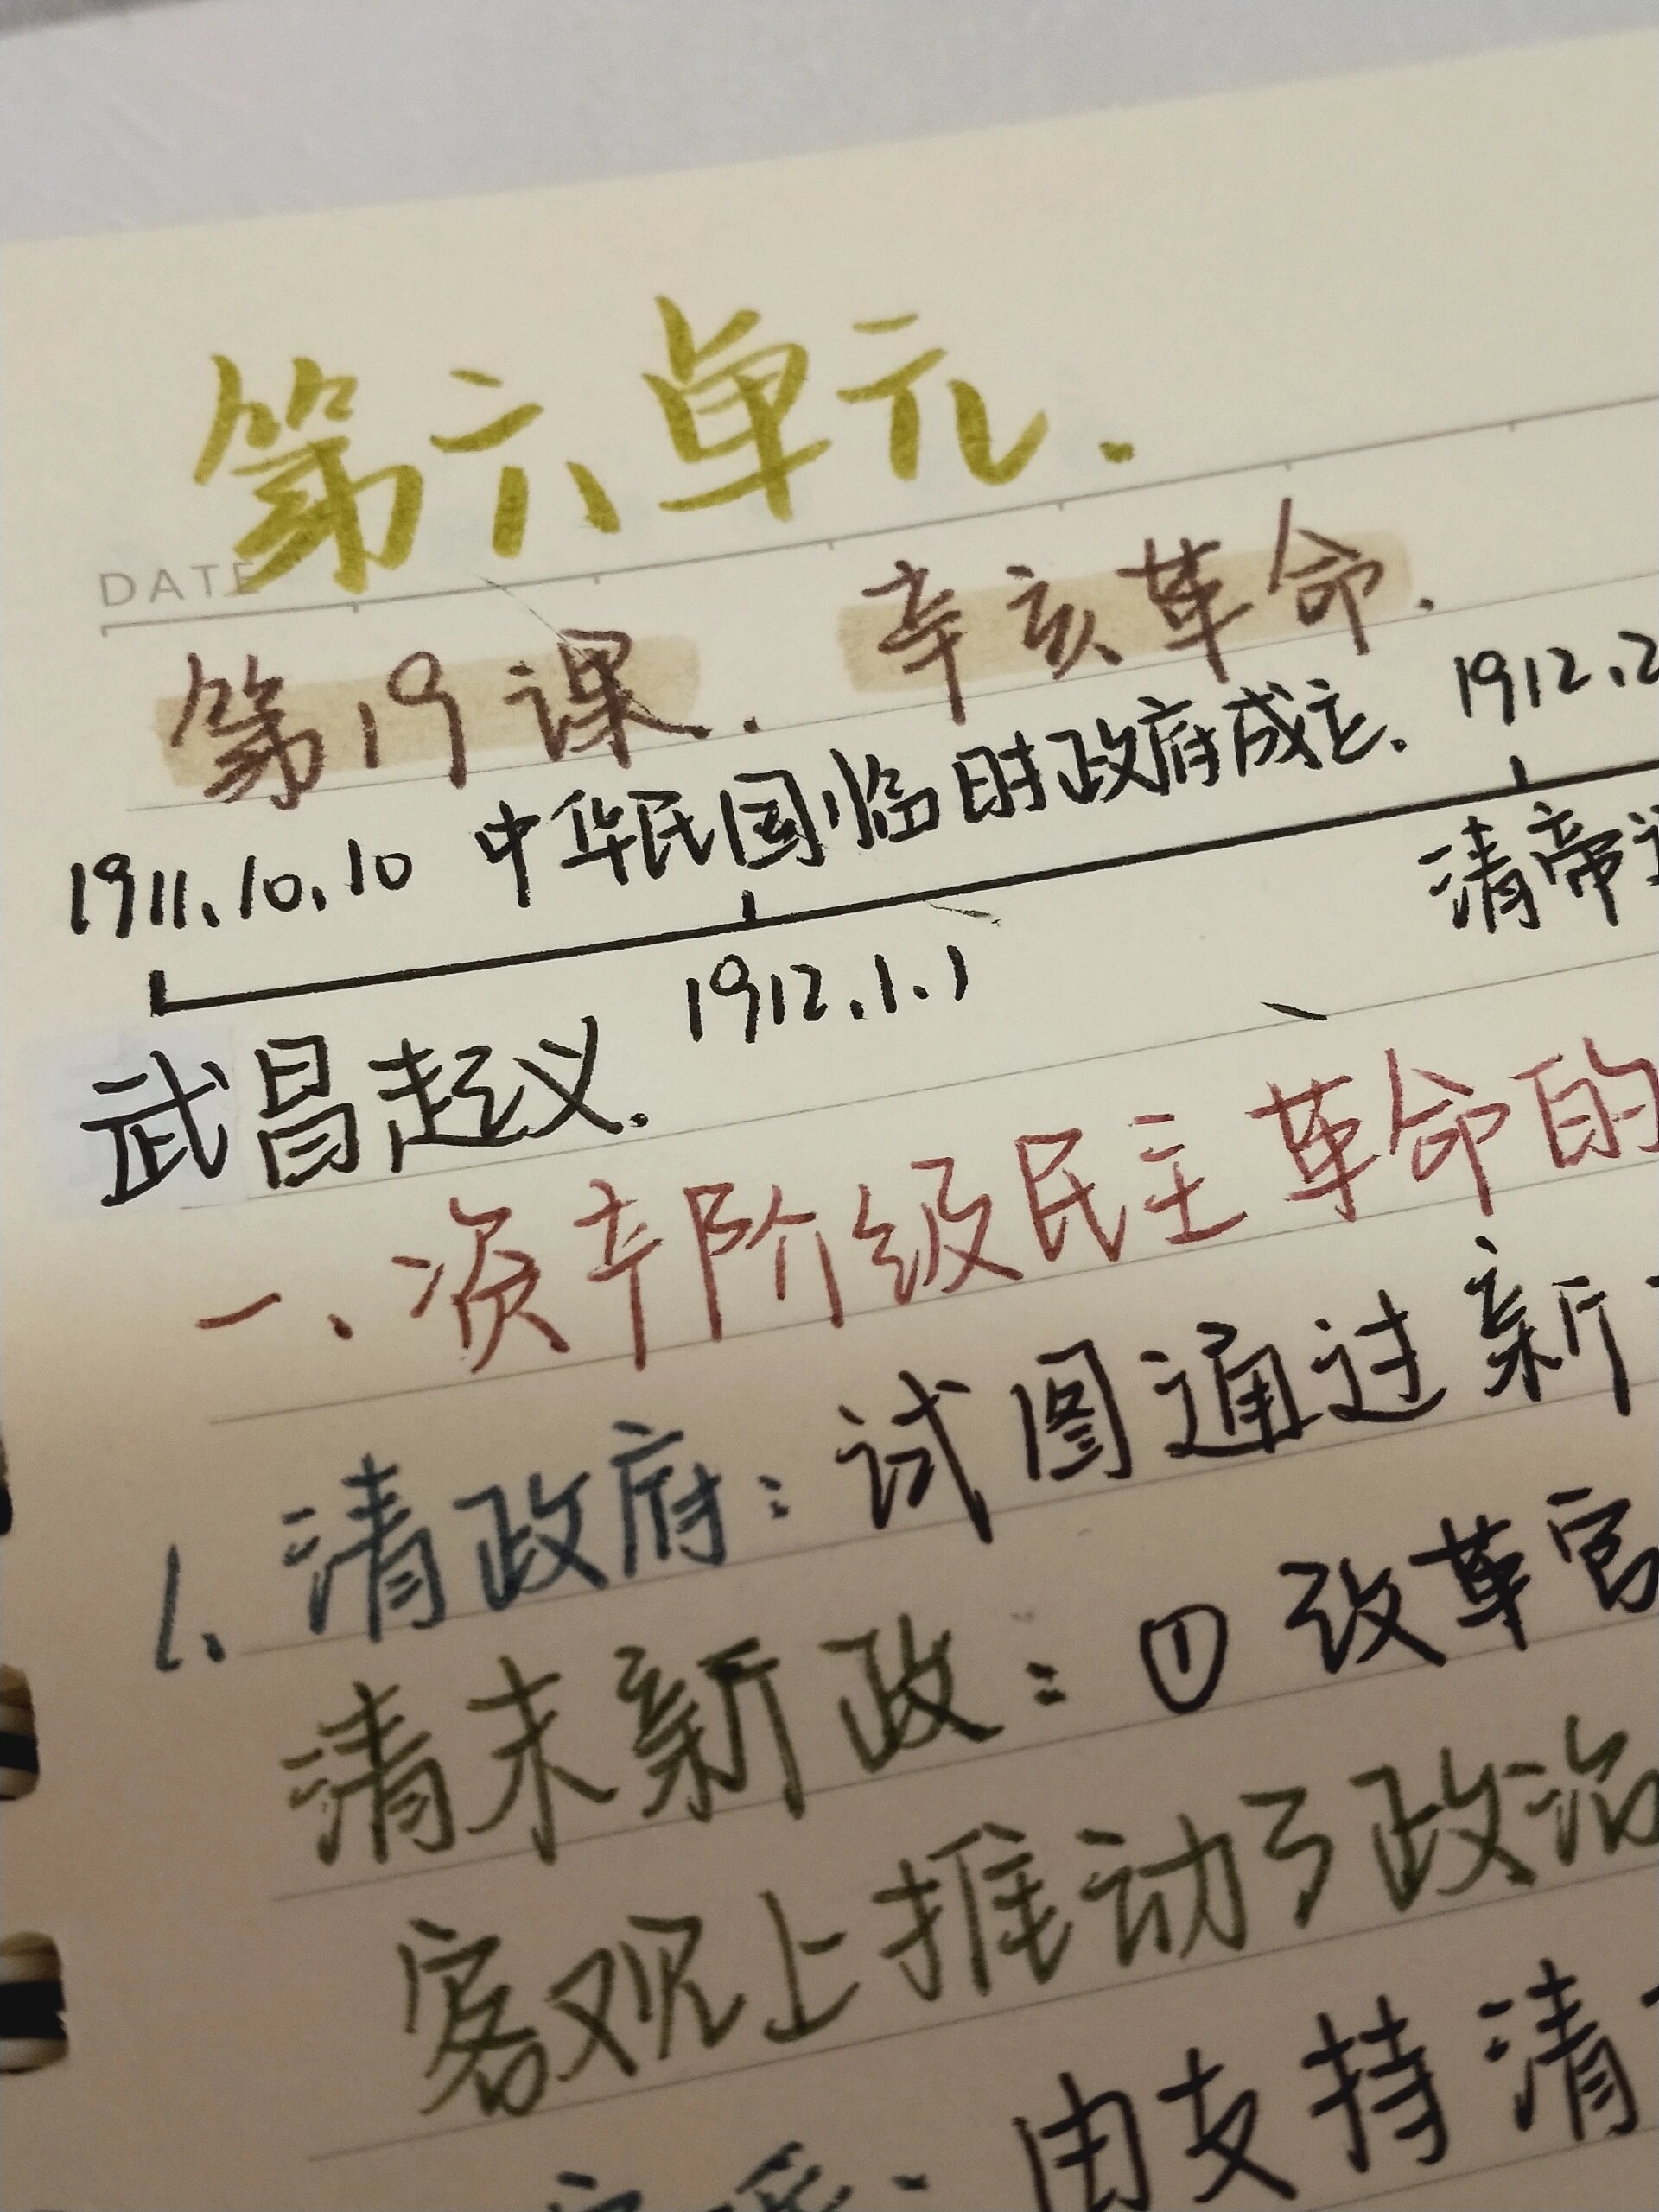 第六单元.
DATE
第19课. 辛亥革命.
1911.10.10 中华民国临时政府成立. 1912.2
1912.1.1 清帝
武昌起义.
一、资产阶级民主革命的
1、清政府：试图通过新
清末新政：① 改革官
客观上推动了政治
由支持清